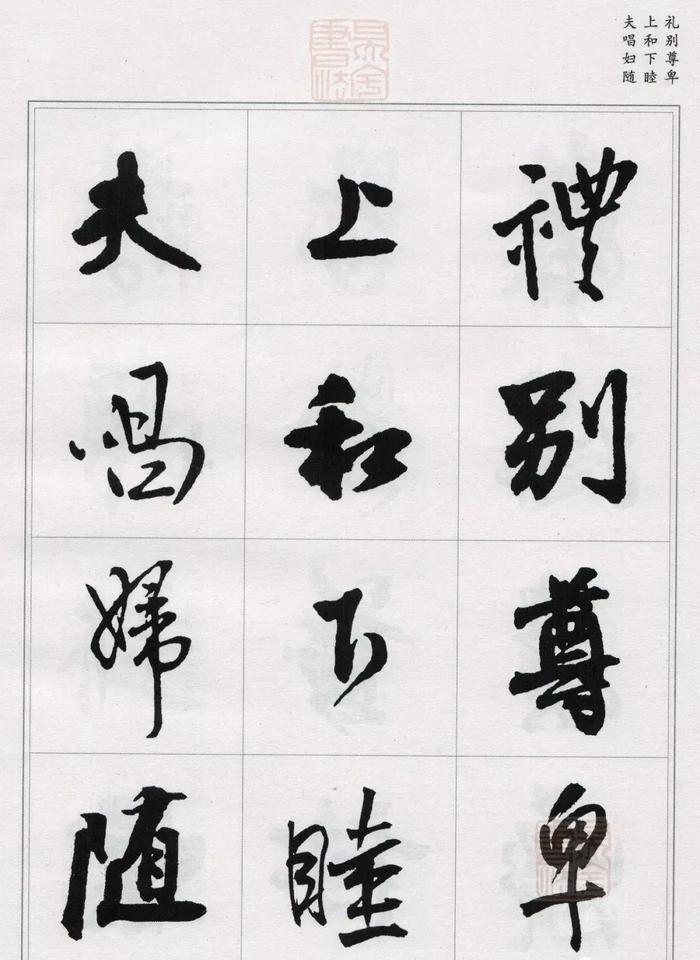 礼别尊卑
上和下睦
夫唱妇随
禮别尊卑
上和下睦
夫唱婦随